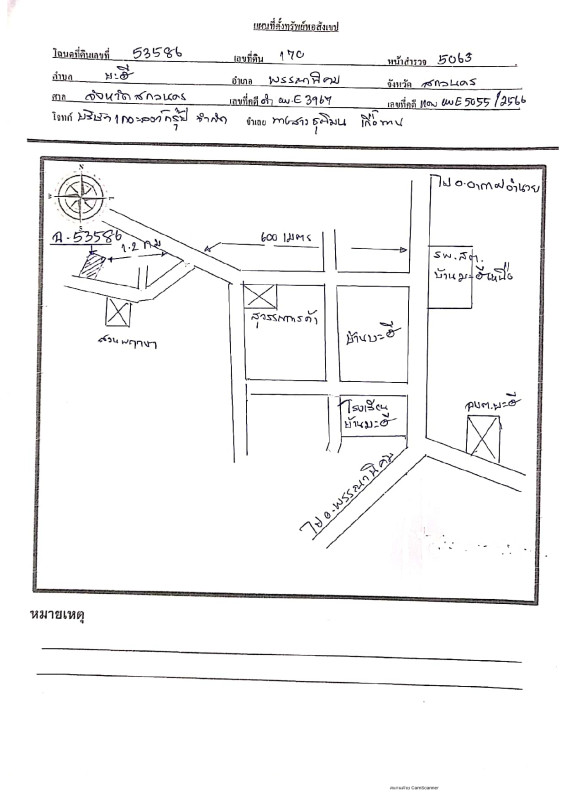 แผนที่ตั้งทรัพย์พอสังเขป
โฉนดที่ดินเลขที่ 53586 เลขที่ดิน 170 หน้าสำรวจ 5063
ตำบล บะฮี อำเภอ พรรณานิคม จังหวัด สกลนคร
ศาล จังหวัดสกลนคร เลขที่คดีดำ ผบE3967 เลขที่คดีแดง ผบE5055/2566
โจทก์ บริษัท จำกัด จำเลย นางสาว
N
ไป อ.อากาศอำนวย
ฉ.53586
1.2 กม
600 เมตร
รพ.สต.
บ้านบะฮีเหนือ
สุวรรณการค้า
บ้านบะฮี
สวนพฤกษา
โรงเรียน
บ้านบะฮี
อบต.บะฮี
ไป อ.พรรณานิคม
หมายเหตุ
สแกนด้วย CamScanner